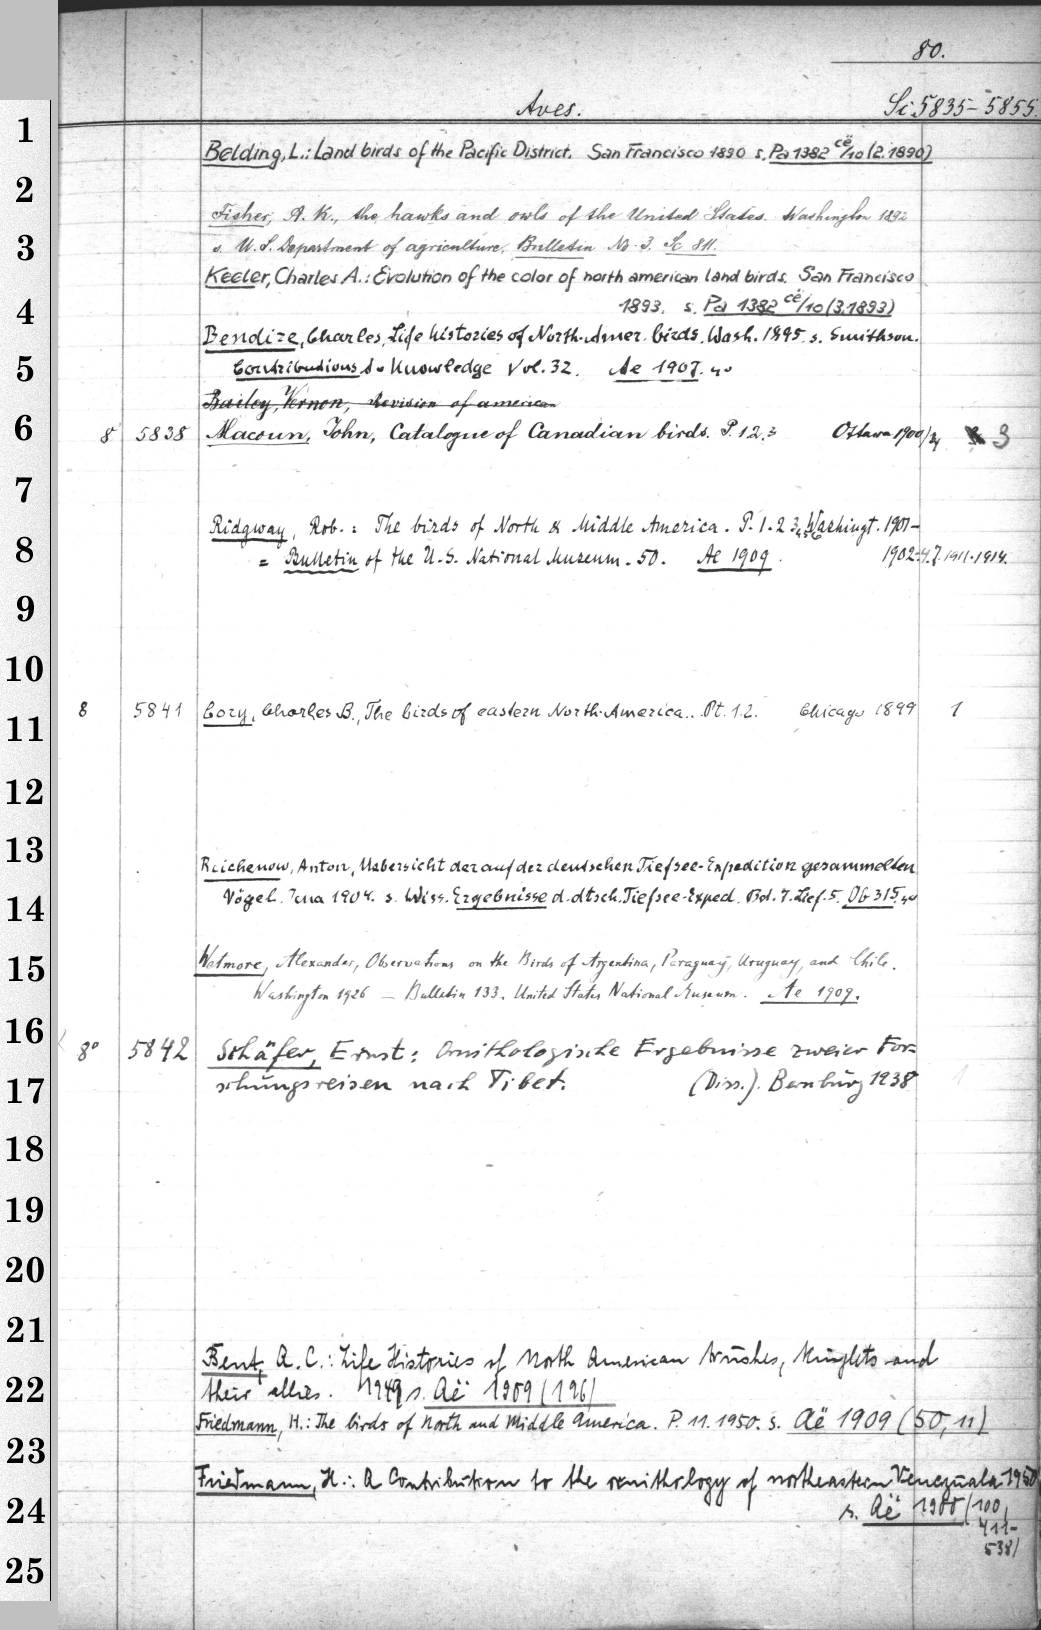 80.
Aves. Sc. 5835-5855.
1
Belding, L.: Land birds of the Pacific District. San Francisco 1890 s. Pa 1382 cë/10 (2.1890)
2
Fisher, A. K., the hawks and owls of the United States. Washington 1892
3
s. U. S. Department of agriculture. Bulletin No. 3. Sc 811.
Keeler, Charles A.: Evolution of the color of north american land birds. San Francisco
4
1893. s. Pa 1382 cë/10 (3.1893)
Bendire, Charles, Life histories of North-Amer. birds. Wash. 1895. s. Smithson.
5
Contributions to Knowledge Vol. 32. Ae 1907. 4o
Bailey, Vernon, Revision of american
6
8 5838 Macoun, John, Catalogue of Canadian birds. P. 1.2.3 Ottawa 1900/04 3
7
Ridgway, Rob.: The birds of North & Middle America. P. 1.2 3,4,5,6 Washingt. 1901-
8
= Bulletin of the U.S. National Museum. 50. Ae 1909. 1902.4.7. 1911.1914.
9
10
8 5841 Cory, Charles B., The birds of eastern North-America.. Pt. 1.2. Chicago 1899 1
11
12
13
Reichenow, Anton, Uebersicht der auf der deutschen Tiefsee-Expedition gesammelten
14
Vögel. Jena 1904. s. Wiss. Ergebnisse d. dtsch. Tiefsee-Exped. Bd. 7. Lief. 5. Ob 315. 4o
15
Wetmore, Alexander, Observations on the Birds of Argentina, Paraguay, Uruguay, and Chile.
Washington 1926 — Bulletin 133. United States National Museum. Ae 1909.
16
8° 5842 Schäfer, Ernst: Ornithologische Ergebnisse zweier For-
17
schungsreisen nach Tibet. (Diss.). Bernburg 1938 1
18
19
20
21
Bent, A. C.: Life Histories of North American thrushes, Kinglets and
22
their allies. 1949 s. Aë 1909 (196)
Friedmann, H.: The birds of North and Middle America. P. 11. 1950. s. Aë 1909 (50,11)
23
Friedmann, H.: A Contribution to the ornithology of northeastern Venezuela 1950
24
s. Aë 1900 (100,
411-
538)
25